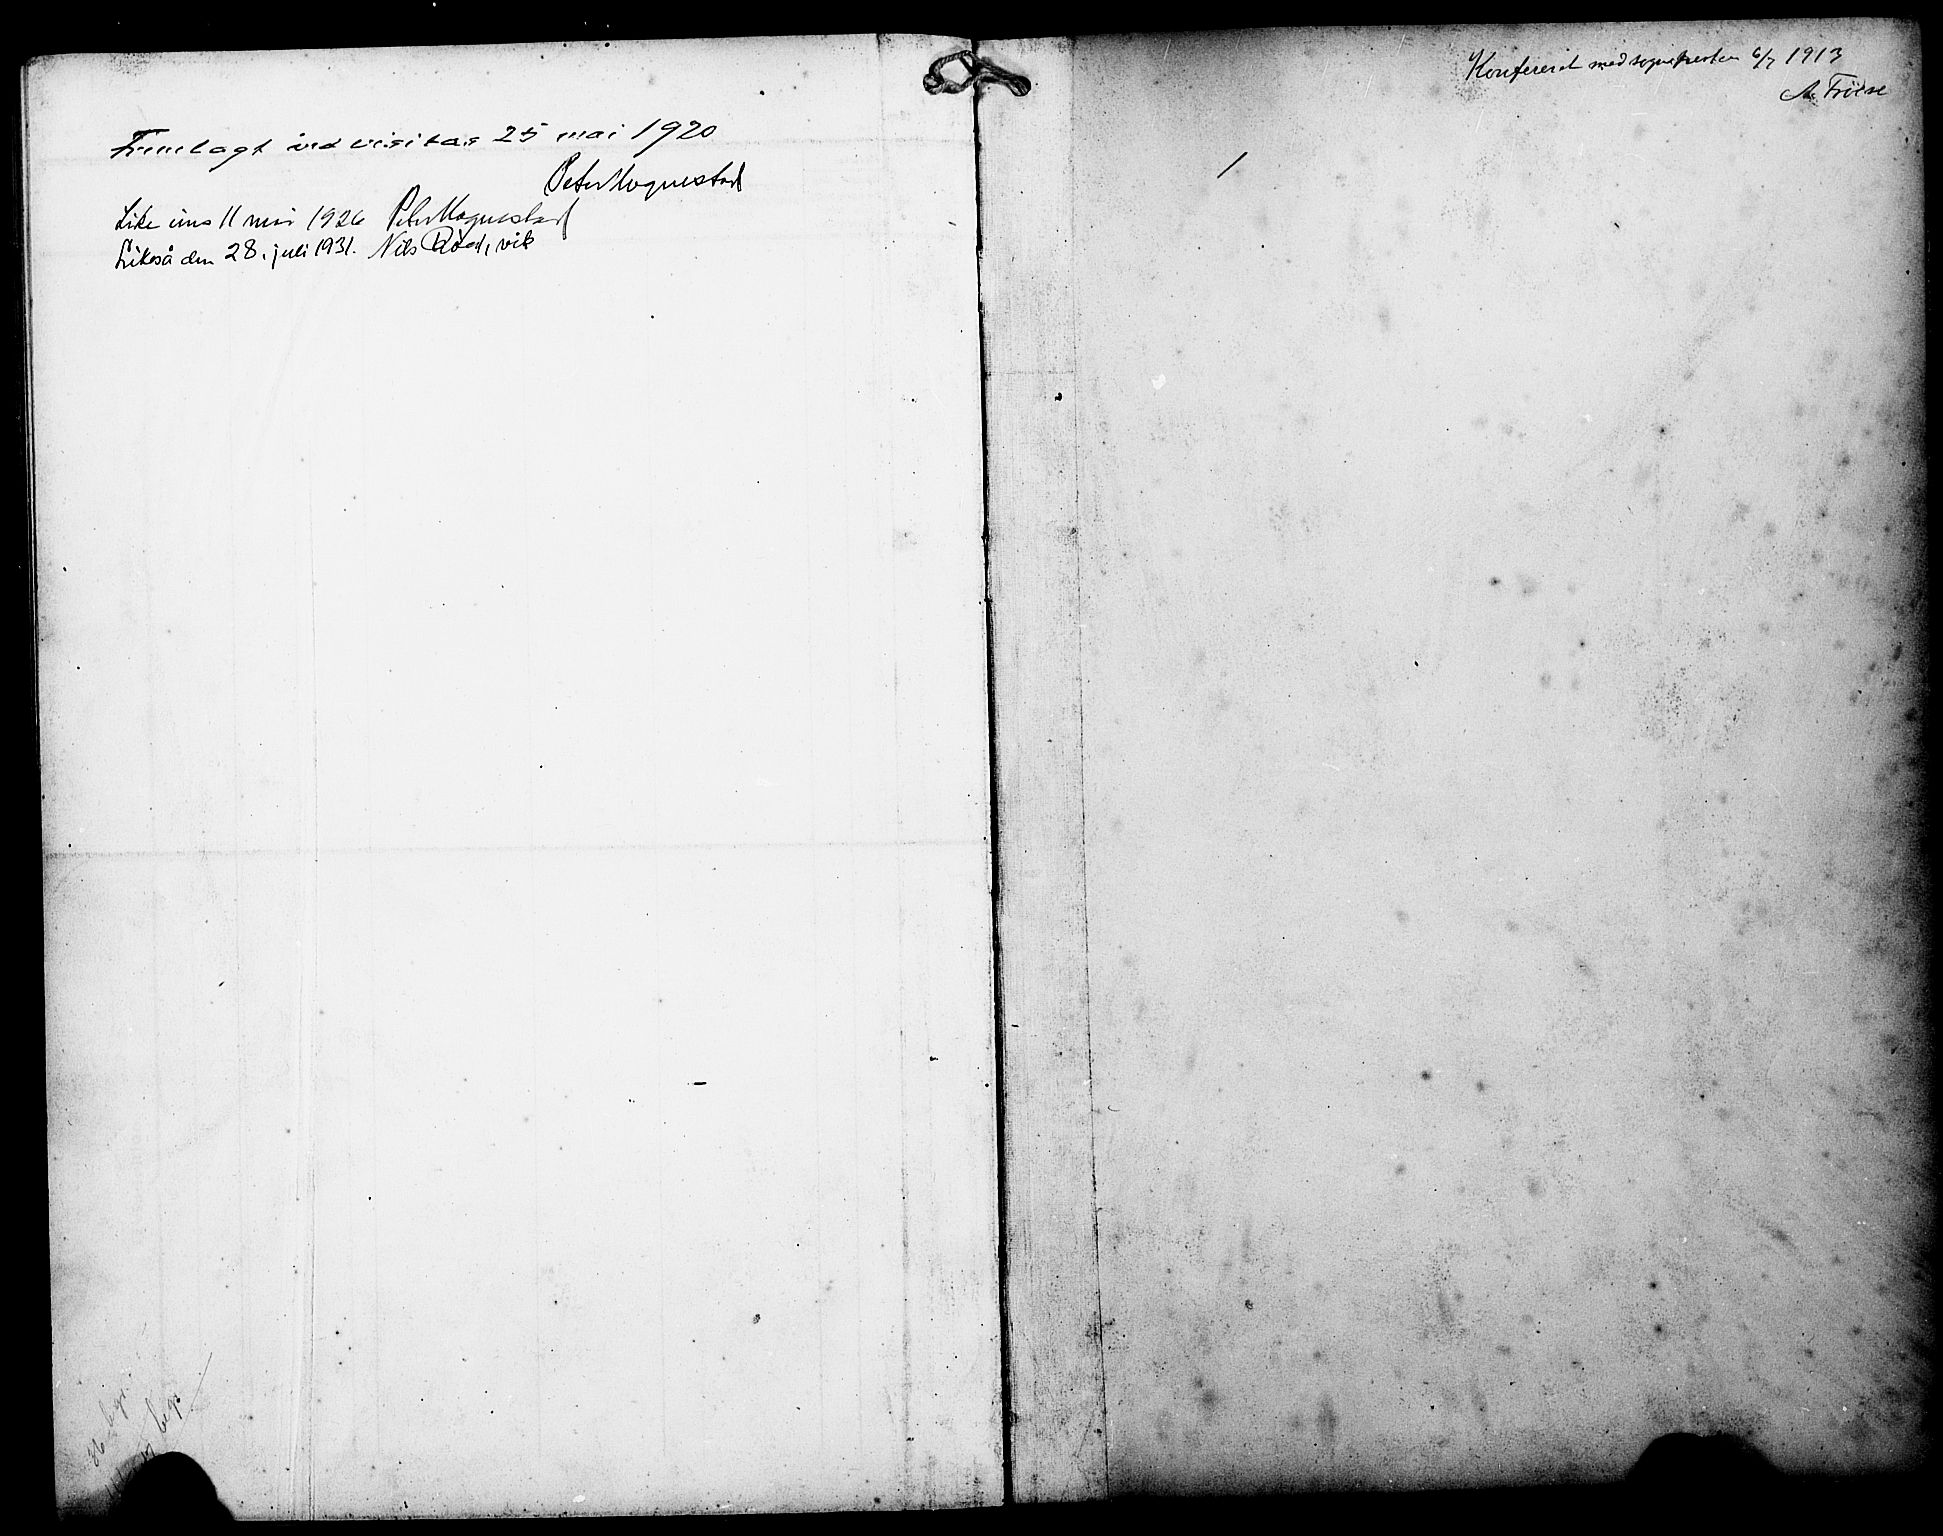 Fremlagt ved visitas 25 mai 1920
Peter Hognestad
Like eins 11 mai 1926 Peter Hognestad
Likeså den 28. juli 1931. Nils Røed, vik
Konfereret med sognepresten 6/7 1913
A. Friise
36 begr.
begr